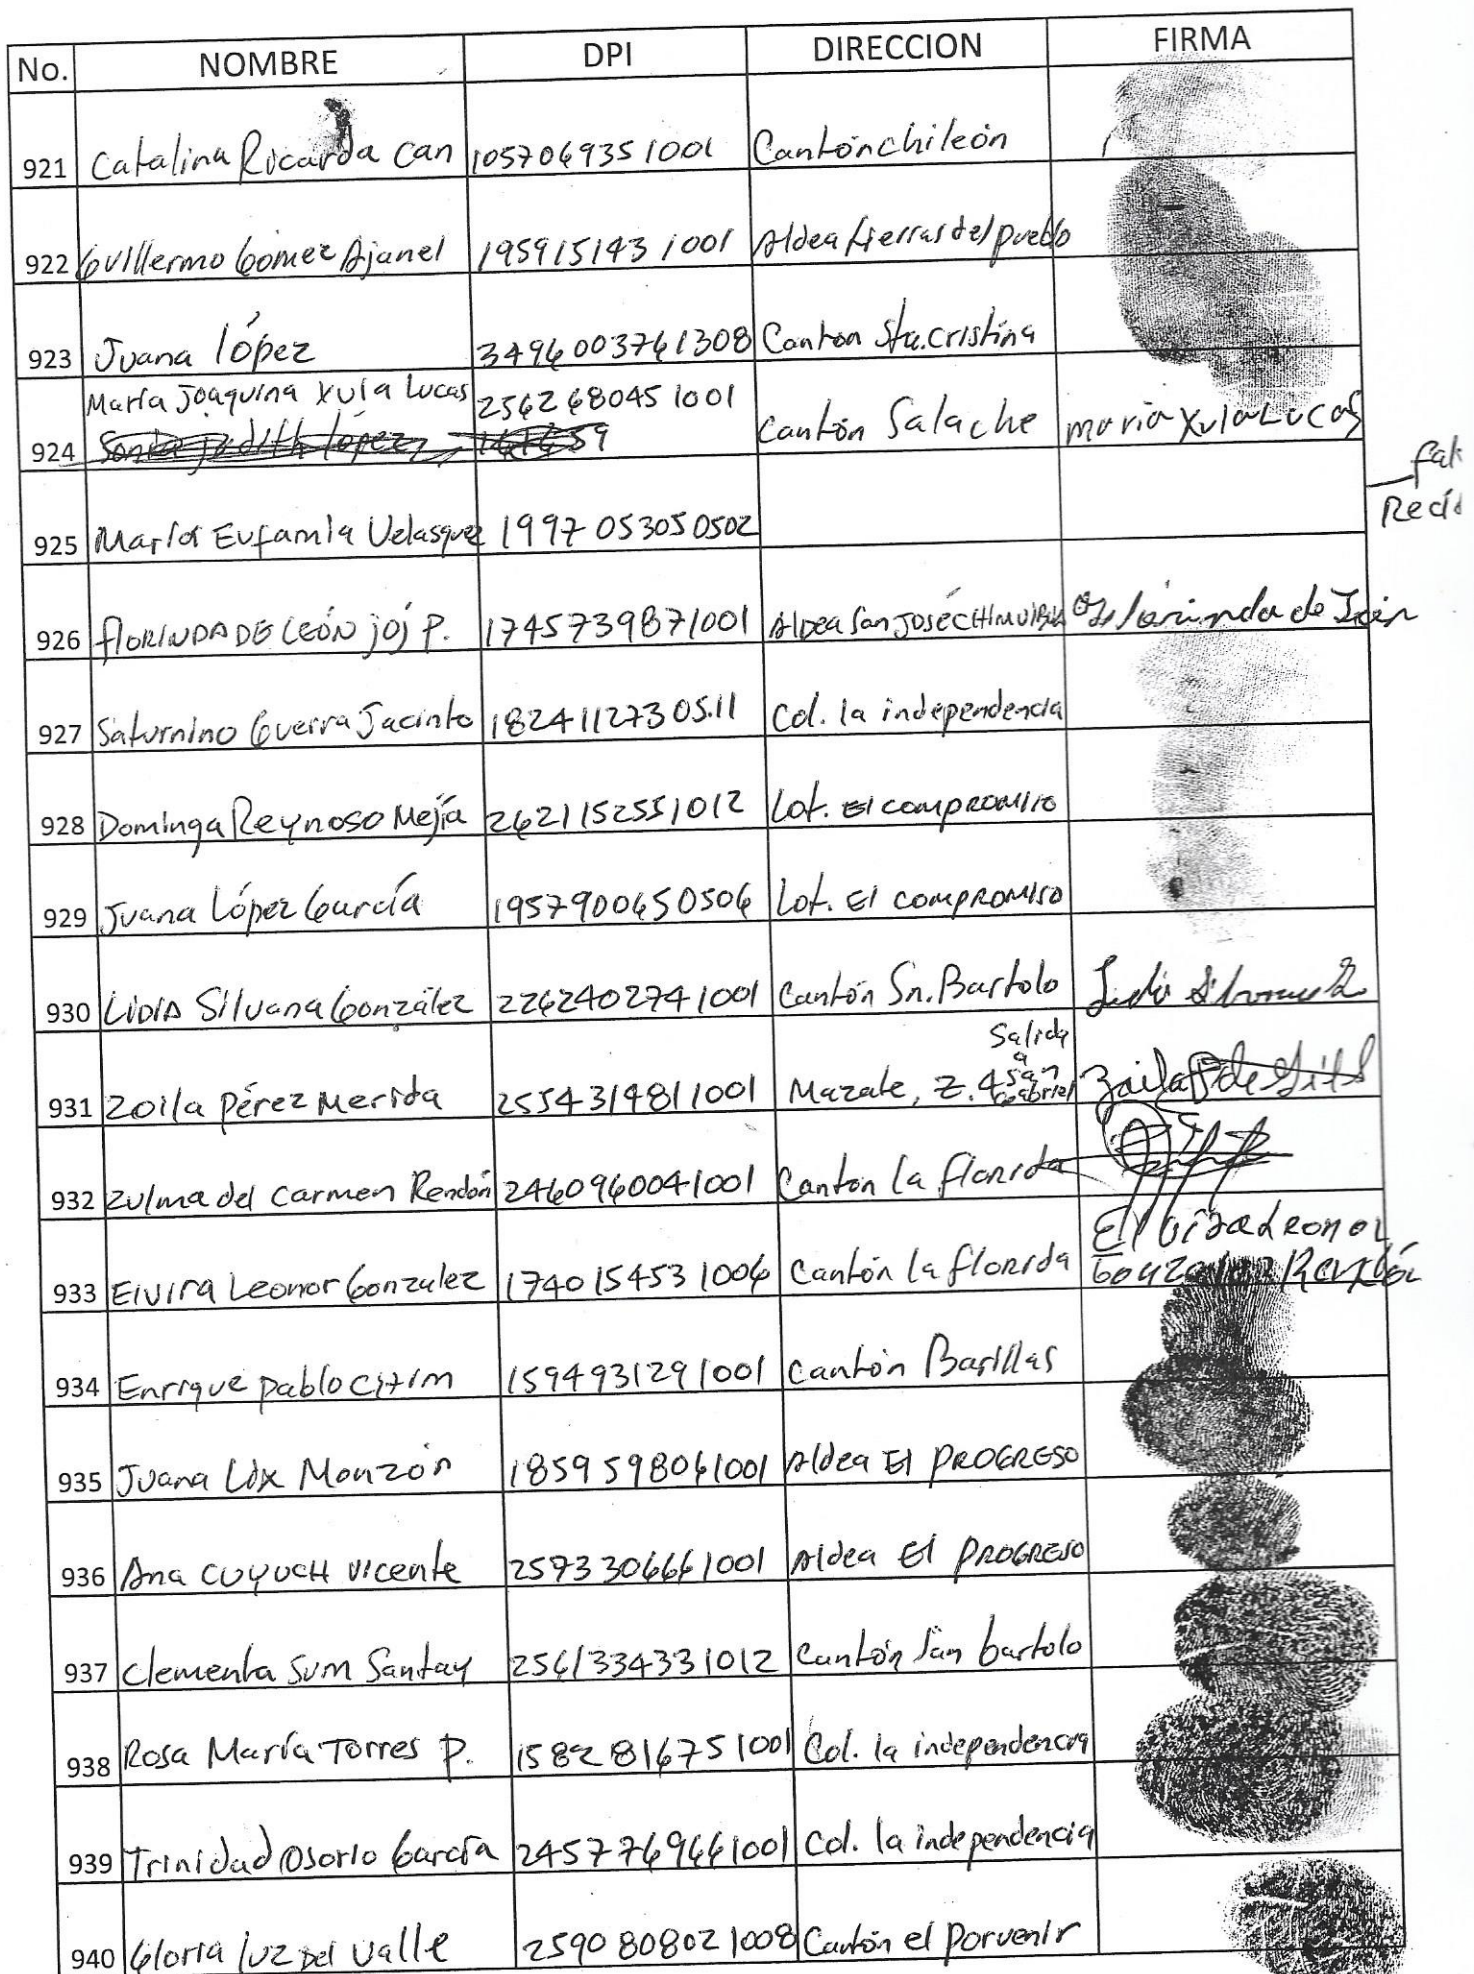 No. NOMBRE DPI DIRECCION FIRMA
921 Catalina Ricarda Can 1057069351001 Cantón chileón
922 Guillermo Gómez Ajanel 1959151431001 Aldea tierras del pueblo
923 Juana lópez 3496003761308 Canton Sta. cristina
María Joaquina Xula Lucas 2562680451001
924 Cantón Salache maria Xula Lucas
925 María Eufamia Velasquez 1997053050502
926 florinda de León joj P. 1745739871001 Aldea San José
927 Saturnino Guerra Jacinto 1824112730511 Col. la independencia
928 Dominga Reynoso Mejía 2621152551012 Lot. El compromiso
929 Juana López García 1957900650506 Lot. El compromiso
930 Lidia Silvana González 2262402741001 Cantón Sn. Bartolo
Salida
a
San
931 Zoila Pérez Merida 2554319811001 Mazate, Z. 4 Gabriel
932 Zulma del Carmen Rendón 2460960041001 Canton la florida
933 Elvira Leonor Gonzalez 1740154531006 Cantón la florida
934 Enrrique pablo 1594931291001 Cantón Barillas
935 Juana Lux Monzón 1859598061001 Aldea El PROGRESO
936 Ana CUYUCH Vicente 2573306661001 Aldea El PROGRESO
937 Clementa Sum Santay 2561334331012 Cantón San bartolo
938 Rosa María Torres P. 1582816751001 Col. la independencia
939 Trinidad Osorio García 2457769661001 Col. la independencia
940 Gloria luz Del Valle 2590808021008 Cantón el Porvenir